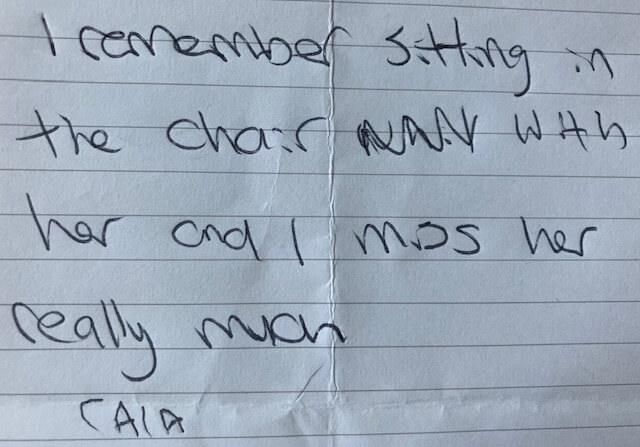 I remember sitting in
the chair with
her and I miss her
really much
CAIA